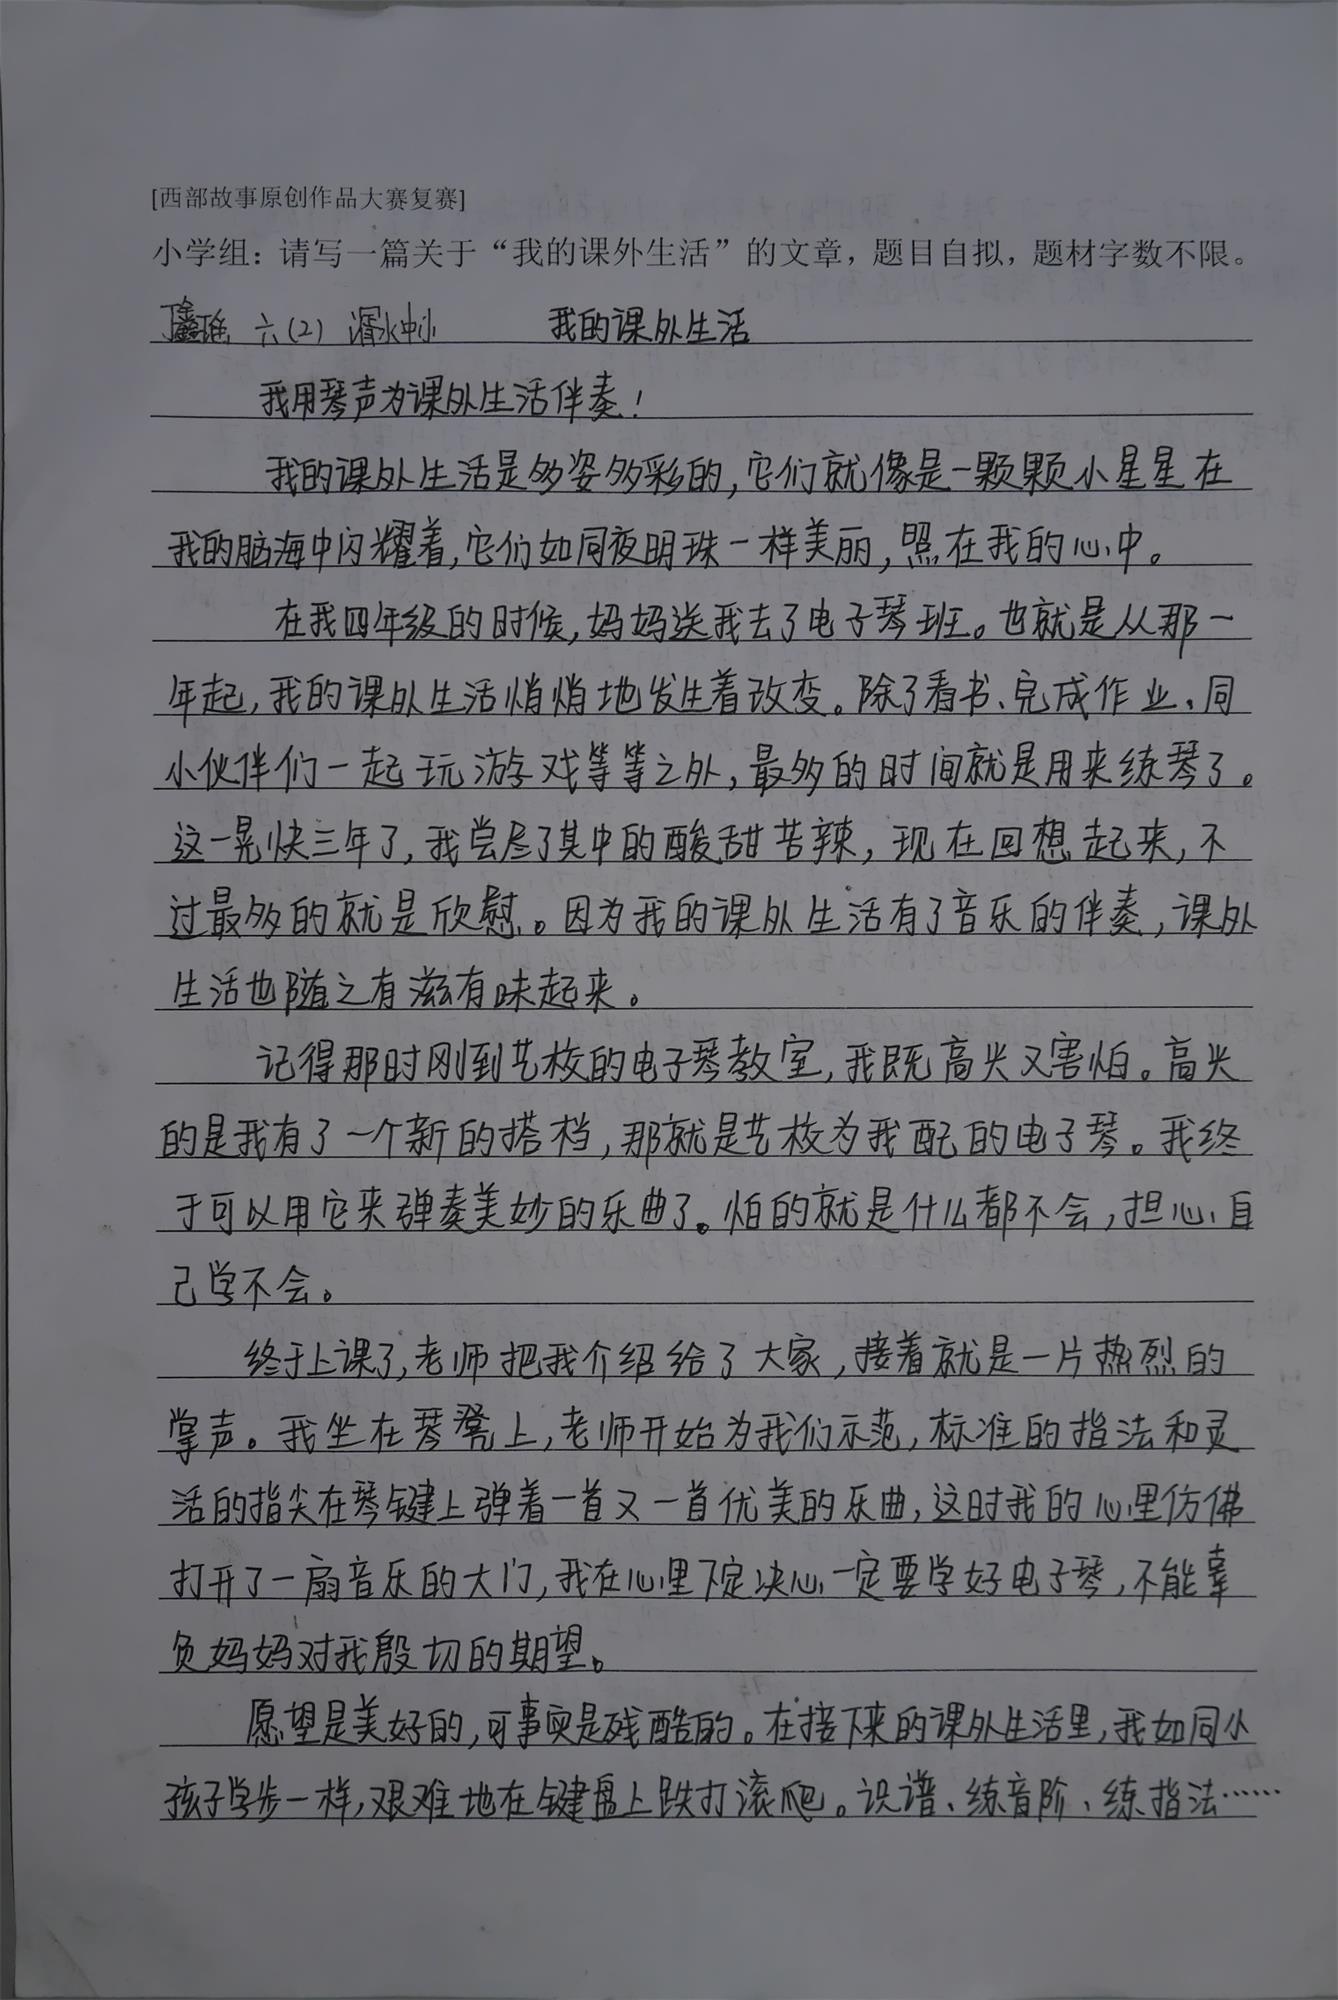 [西部故事原创作品大赛复赛]
小学组：请写一篇关于“我的课外生活”的文章，题目自拟，题材字数不限。
丁鑫瑶 六(2) 湑水中小 我的课外生活
我用琴声为课外生活伴奏！
我的课外生活是多姿多彩的，它们就像是一颗颗小星星在
我的脑海中闪耀着，它们如同夜明珠一样美丽，照在我的心中。
在我四年级的时候，妈妈送我去了电子琴班。也就是从那一
年起，我的课外生活悄悄地发生着改变。除了看书、完成作业、同
小伙伴们一起玩游戏等等之外，最多的时间就是用来练琴了。
这一晃快三年了，我尝尽了其中的酸甜苦辣，现在回想起来，不
过最多的就是欣慰。因为我的课外生活有了音乐的伴奏，课外
生活也随之有滋有味起来。
记得那时刚到艺校的电子琴教室，我既高兴又害怕。高兴
的是我有了一个新的搭档，那就是艺校为我配的电子琴。我终
于可以用它来弹奏美妙的乐曲了。怕的就是什么都不会，担心自
己学不会。
终于上课了，老师把我介绍给了大家，接着就是一片热烈的
掌声。我坐在琴凳上，老师开始为我们示范，标准的指法和灵
活的指尖在琴键上弹着一首又一首优美的乐曲，这时我的心里仿佛
打开了一扇音乐的大门，我在心里下定决心一定要学好电子琴，不能辜
负妈妈对我殷切的期望。
愿望是美好的，可事实是残酷的。在接下来的课外生活里，我如同小
孩子学步一样，艰难地在键盘上跌打滚爬。识谱、练音阶、练指法……